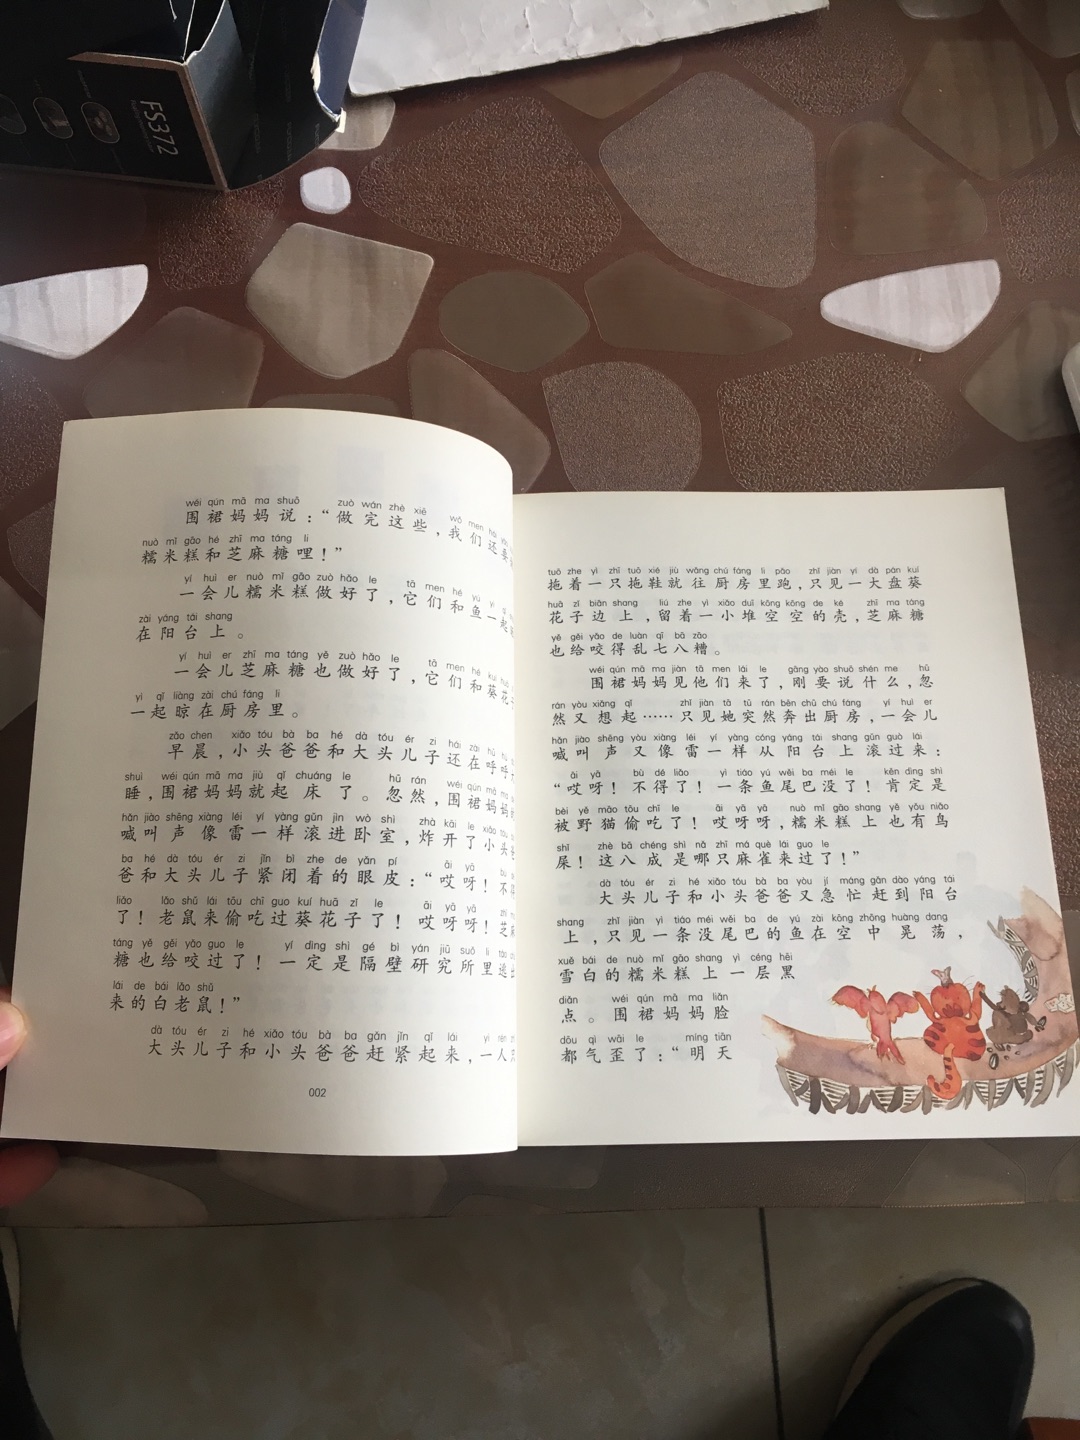 FS372
wéi qún mā ma shuō zuò wán zhè xiē wǒ men hái yào
围裙妈妈说：“做完这些，我们还要
nuò mǐ gāo hé zhī ma táng li
糯米糕和芝麻糖哩！”
yí huì er nuò mǐ gāo zuò hǎo le tā men hé yú yì qǐ
一会儿糯米糕做好了，它们和鱼一起
zài yáng tái shang
在阳台上。
yí huì er zhī ma táng yě zuò hǎo le tā men hé kuí huā
一会儿芝麻糖也做好了，它们和葵花子
yì qǐ liàng zài chú fáng li
一起晾在厨房里。
zǎo chen xiǎo tóu bà ba hé dà tóu ér zi hái zài hū hū
早晨，小头爸爸和大头儿子还在呼呼
shuì wéi qún mā ma jiù qǐ chuáng le hū rán wéi qún mā ma
睡，围裙妈妈就起床了。忽然，围裙妈妈
hǎn jiào shēng xiàng léi yí yàng gǔn jìn wò shì zhà kāi le xiǎo tóu
喊叫声像雷一样滚进卧室，炸开了小头爸
ba hé dà tóu ér zi jǐn bì zhe de yǎn pí āi yā bù
爸和大头儿子紧闭着的眼皮：“哎呀！不得
liǎo lǎo shǔ lái tōu chī guo kuí huā zǐ le āi yā yā
了！老鼠来偷吃过葵花子了！哎呀呀！芝麻
táng yě gěi yǎo guo le yí dìng shì gé bì yán jiū suǒ li táo
糖也给咬过了！一定是隔壁研究所里逃出
lái de bái lǎo shǔ
来的白老鼠！”
dà tóu ér zi hé xiǎo tóu bà ba gǎn jǐn qǐ lái yì rén
大头儿子和小头爸爸赶紧起来，一人只
002
tuō zhe yì zhī tuō xié jiù wǎng chú fáng li pǎo zhǐ jiàn yí dà pán kuí
拖着一只拖鞋就往厨房里跑，只见一大盘葵
huā zǐ biān shang liú zhe yì xiǎo duī kōng kōng de ké zhī ma táng
花子边上，留着一小堆空空的壳，芝麻糖
yě gěi yǎo de luàn qī bā zāo
也给咬得乱七八糟。
wéi qún mā ma jiàn tā men lái le gāng yào shuō shén me hū
围裙妈妈见他们来了，刚要说什么，忽
rán yòu xiǎng qǐ zhǐ jiàn tā tū rán bēn chū chú fáng yí huì er
然又想起……只见她突然奔出厨房，一会儿
hǎn jiào shēng yòu xiàng léi yí yàng cóng yáng tái shang gǔn guò lái
喊叫声又像雷一样从阳台上滚过来：
āi yā bù dé liǎo yì tiáo yú wěi ba méi le kěn dìng shì
“哎呀！不得了！一条鱼尾巴没了！肯定是
bèi yě māo tōu chī le āi yā yā nuò mǐ gāo shang yě yǒu niǎo
被野猫偷吃了！哎呀呀，糯米糕上也有鸟
shǐ zhè bā chéng shì nǎ zhī má què lái guo le
屎！这八成是哪只麻雀来过了！”
dà tóu ér zi hé xiǎo tóu bà ba yòu jí máng gǎn dào yáng tái
大头儿子和小头爸爸又急忙赶到阳台
shang zhǐ jiàn yì tiáo méi wěi ba de yú zài kōng zhōng huàng dang
上，只见一条没尾巴的鱼在空中晃荡，
xuě bái de nuò mǐ gāo shang yì céng hēi
雪白的糯米糕上一层黑
diǎn wéi qún mā ma liǎn
点。围裙妈妈脸
dōu qì wāi le míng tiān
都气歪了：“明天